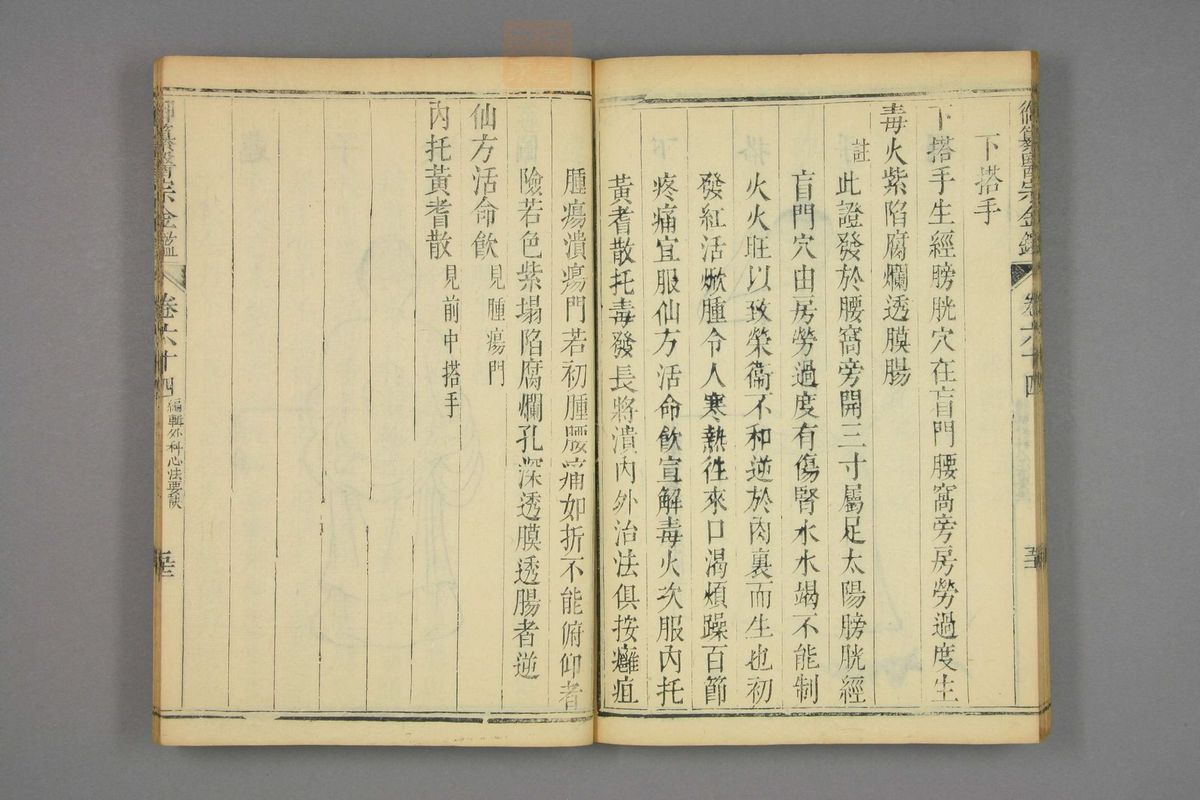 御纂醫宗金鑑 卷六十四 五十三
下搭手
下搭手生經膀胱穴在肓門腰窩旁房勞過度生
毒火紫陷腐爛透膜腸
註此證發於腰窩旁開三寸屬足太陽膀胱經
肓門穴由房勞過度有傷腎水水竭不能制
火火旺以致榮衞不和逆於肉裏而生也初
發紅活焮腫令人寒熱往來口渴煩躁百節
疼痛宜服仙方活命飲宣解毒火次服內托
黃耆散托毒發長將潰內外治法俱按癰疽
腫瘍潰瘍門若初腫腰痛如折不能俯仰者
險若色紫塌陷腐爛孔深透膜透腸者逆
仙方活命飲見腫瘍門
內托黃耆散見前中搭手
御纂醫宗金鑑 卷六十四 編輯外科心法要訣